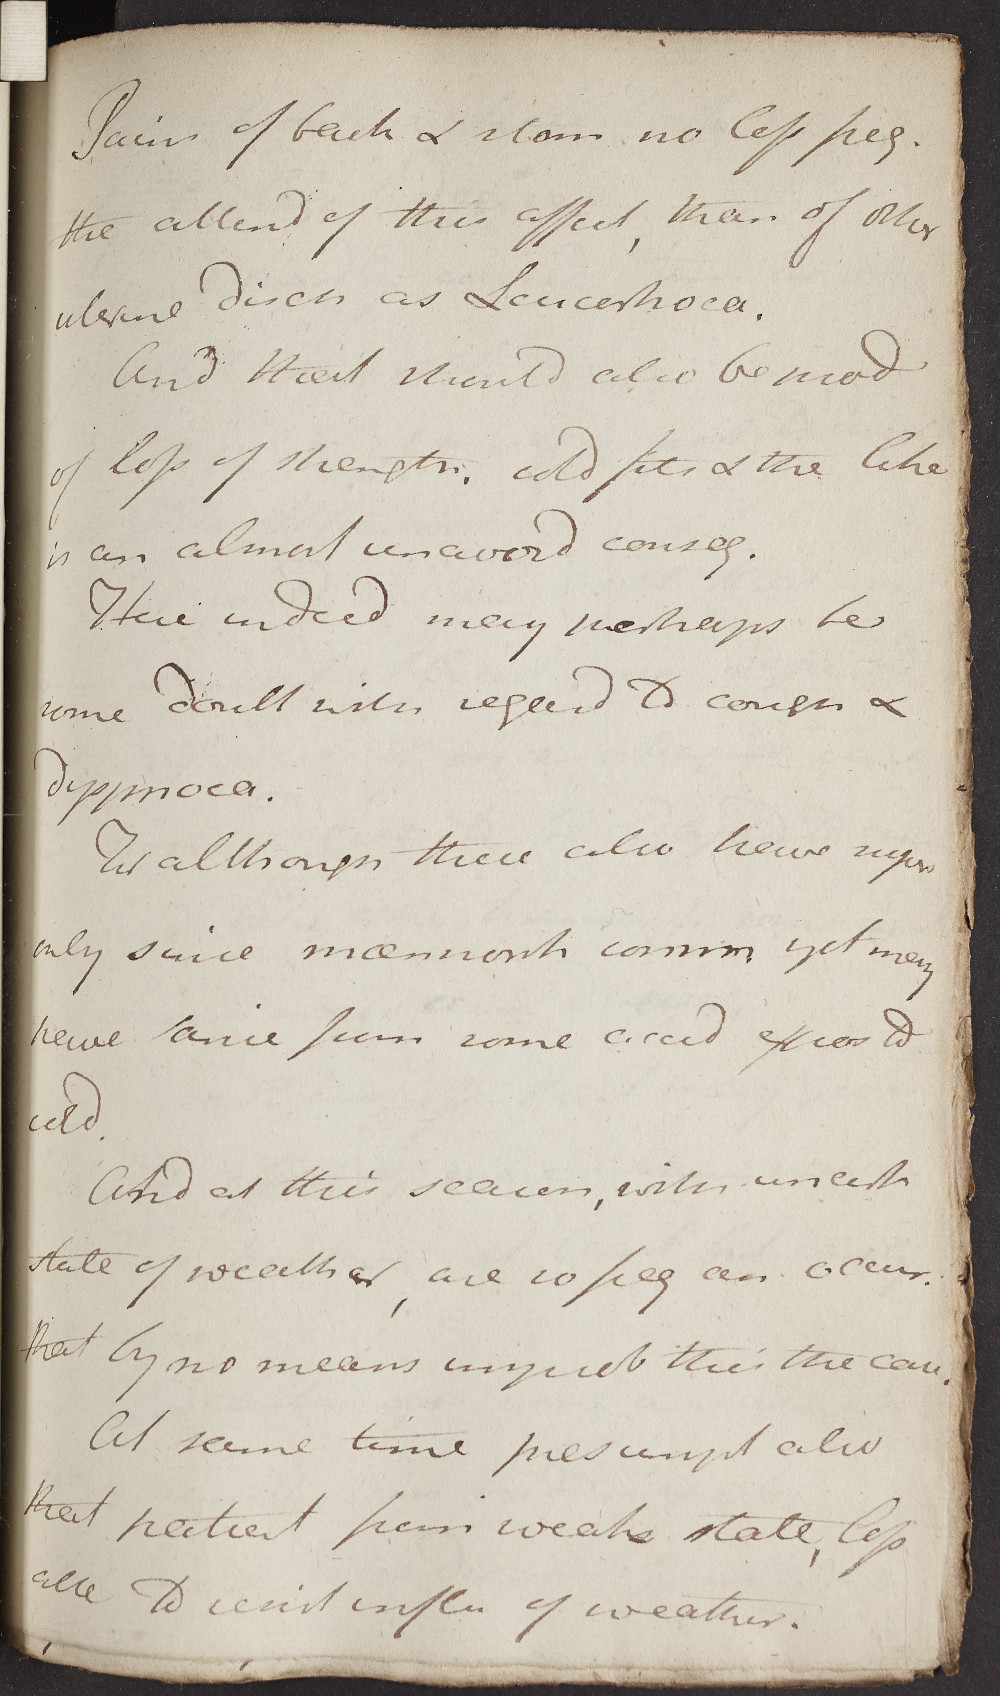 Pains of back & stom no less freq.
the attend of this affect, than of other
uterine disch as Leucorrhoea.
And that should also be prod
of loss of strength. cold fits & the like
is an almost unavoid conseq.
There indeed may perhaps be
some doubt with regard to cough &
dyspnoea.
For although these also have supr
only since menorrh comm, yet may
have arise from some accid expos to
cold.
And at this season, with uncert
state of weather, are so freq an occur.
that by no means improb this the case.
At same time presumpt also
that patient from weak state, less
able to resist influ of weather.